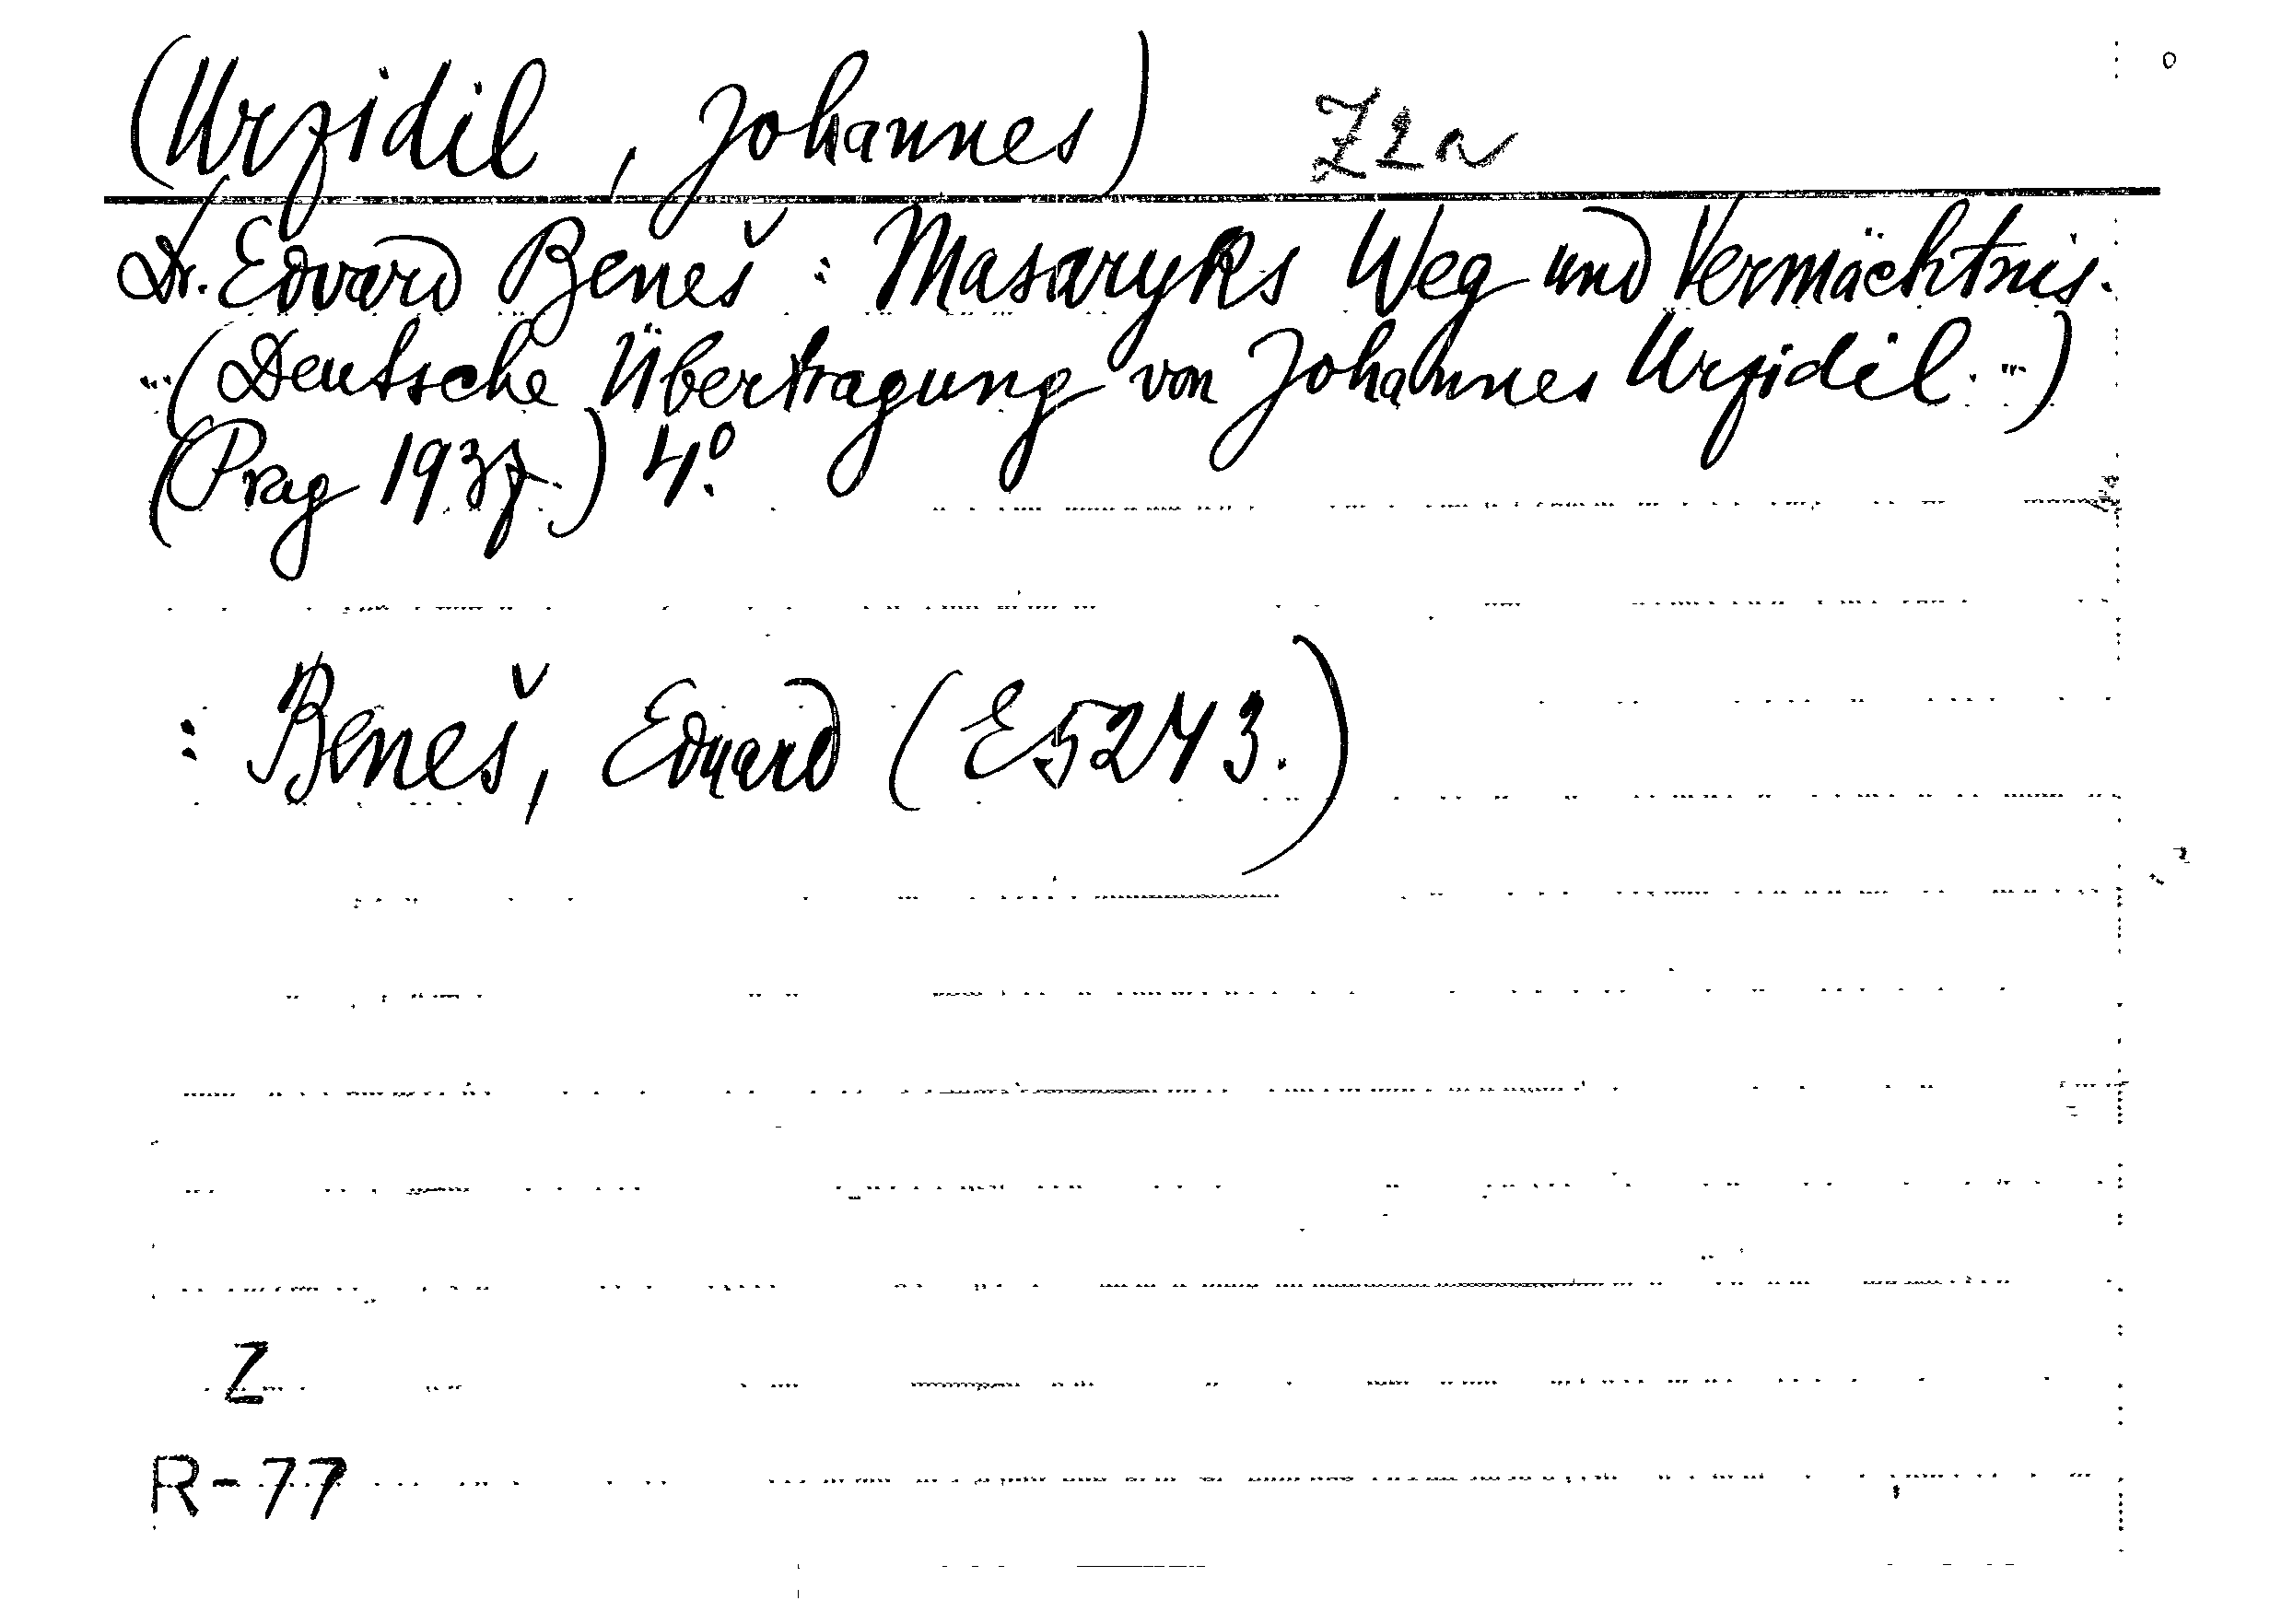 (Urzidil, Johannes) Z2a
Dr. Edvard Beneš: Masaryks Weg und Vermächtnis.
"(Deutsche Übertragung von Johannes Urzidil.")
(Prag 1937.) 4°.
: Beneš, Eduard (E5243.)
Z
R-77